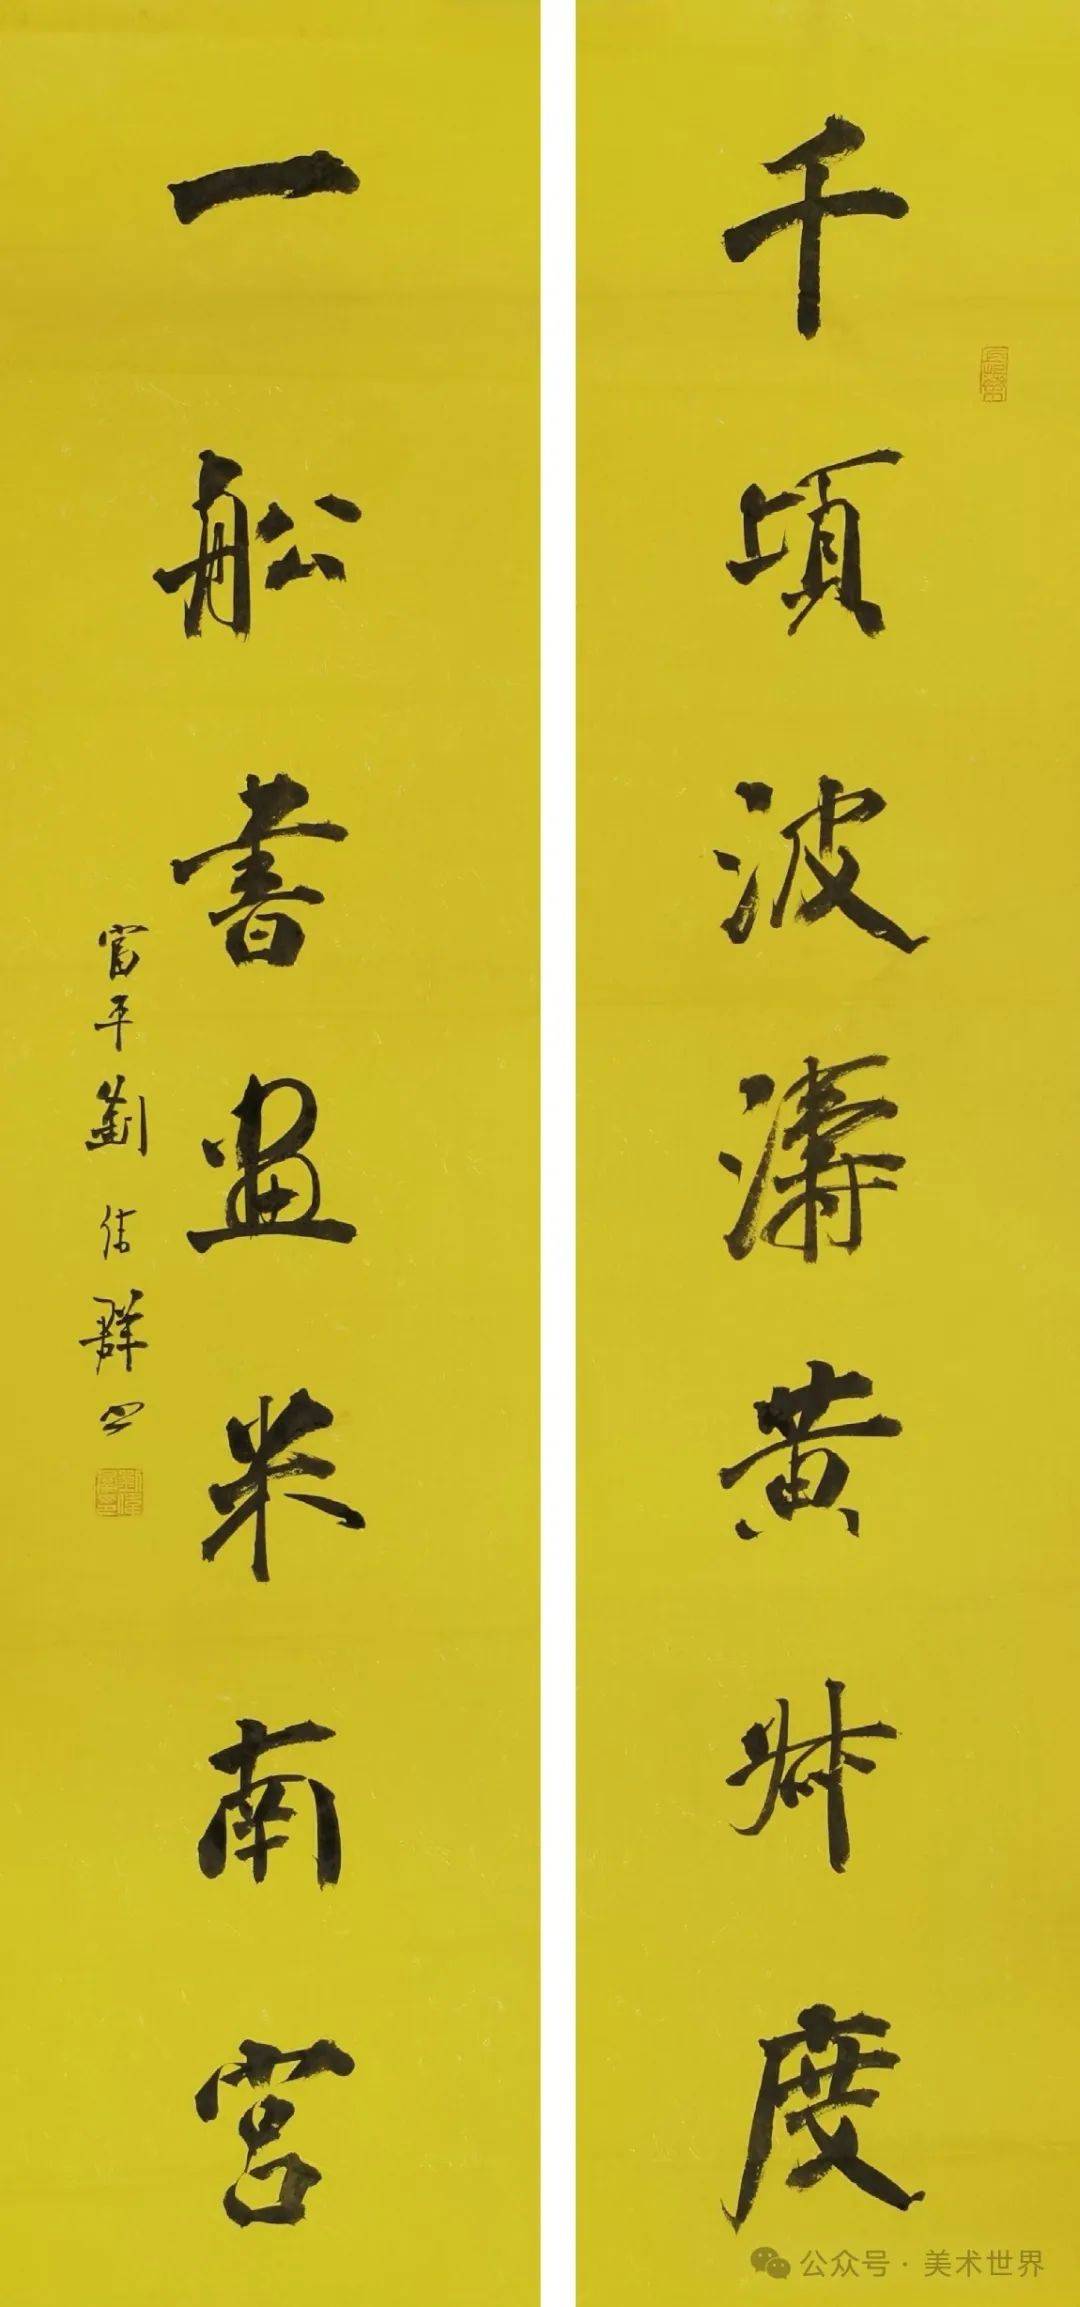 千頃波濤黄叔度
一舩書畫米南宮
富平劉偉群書
公众号·美术世界